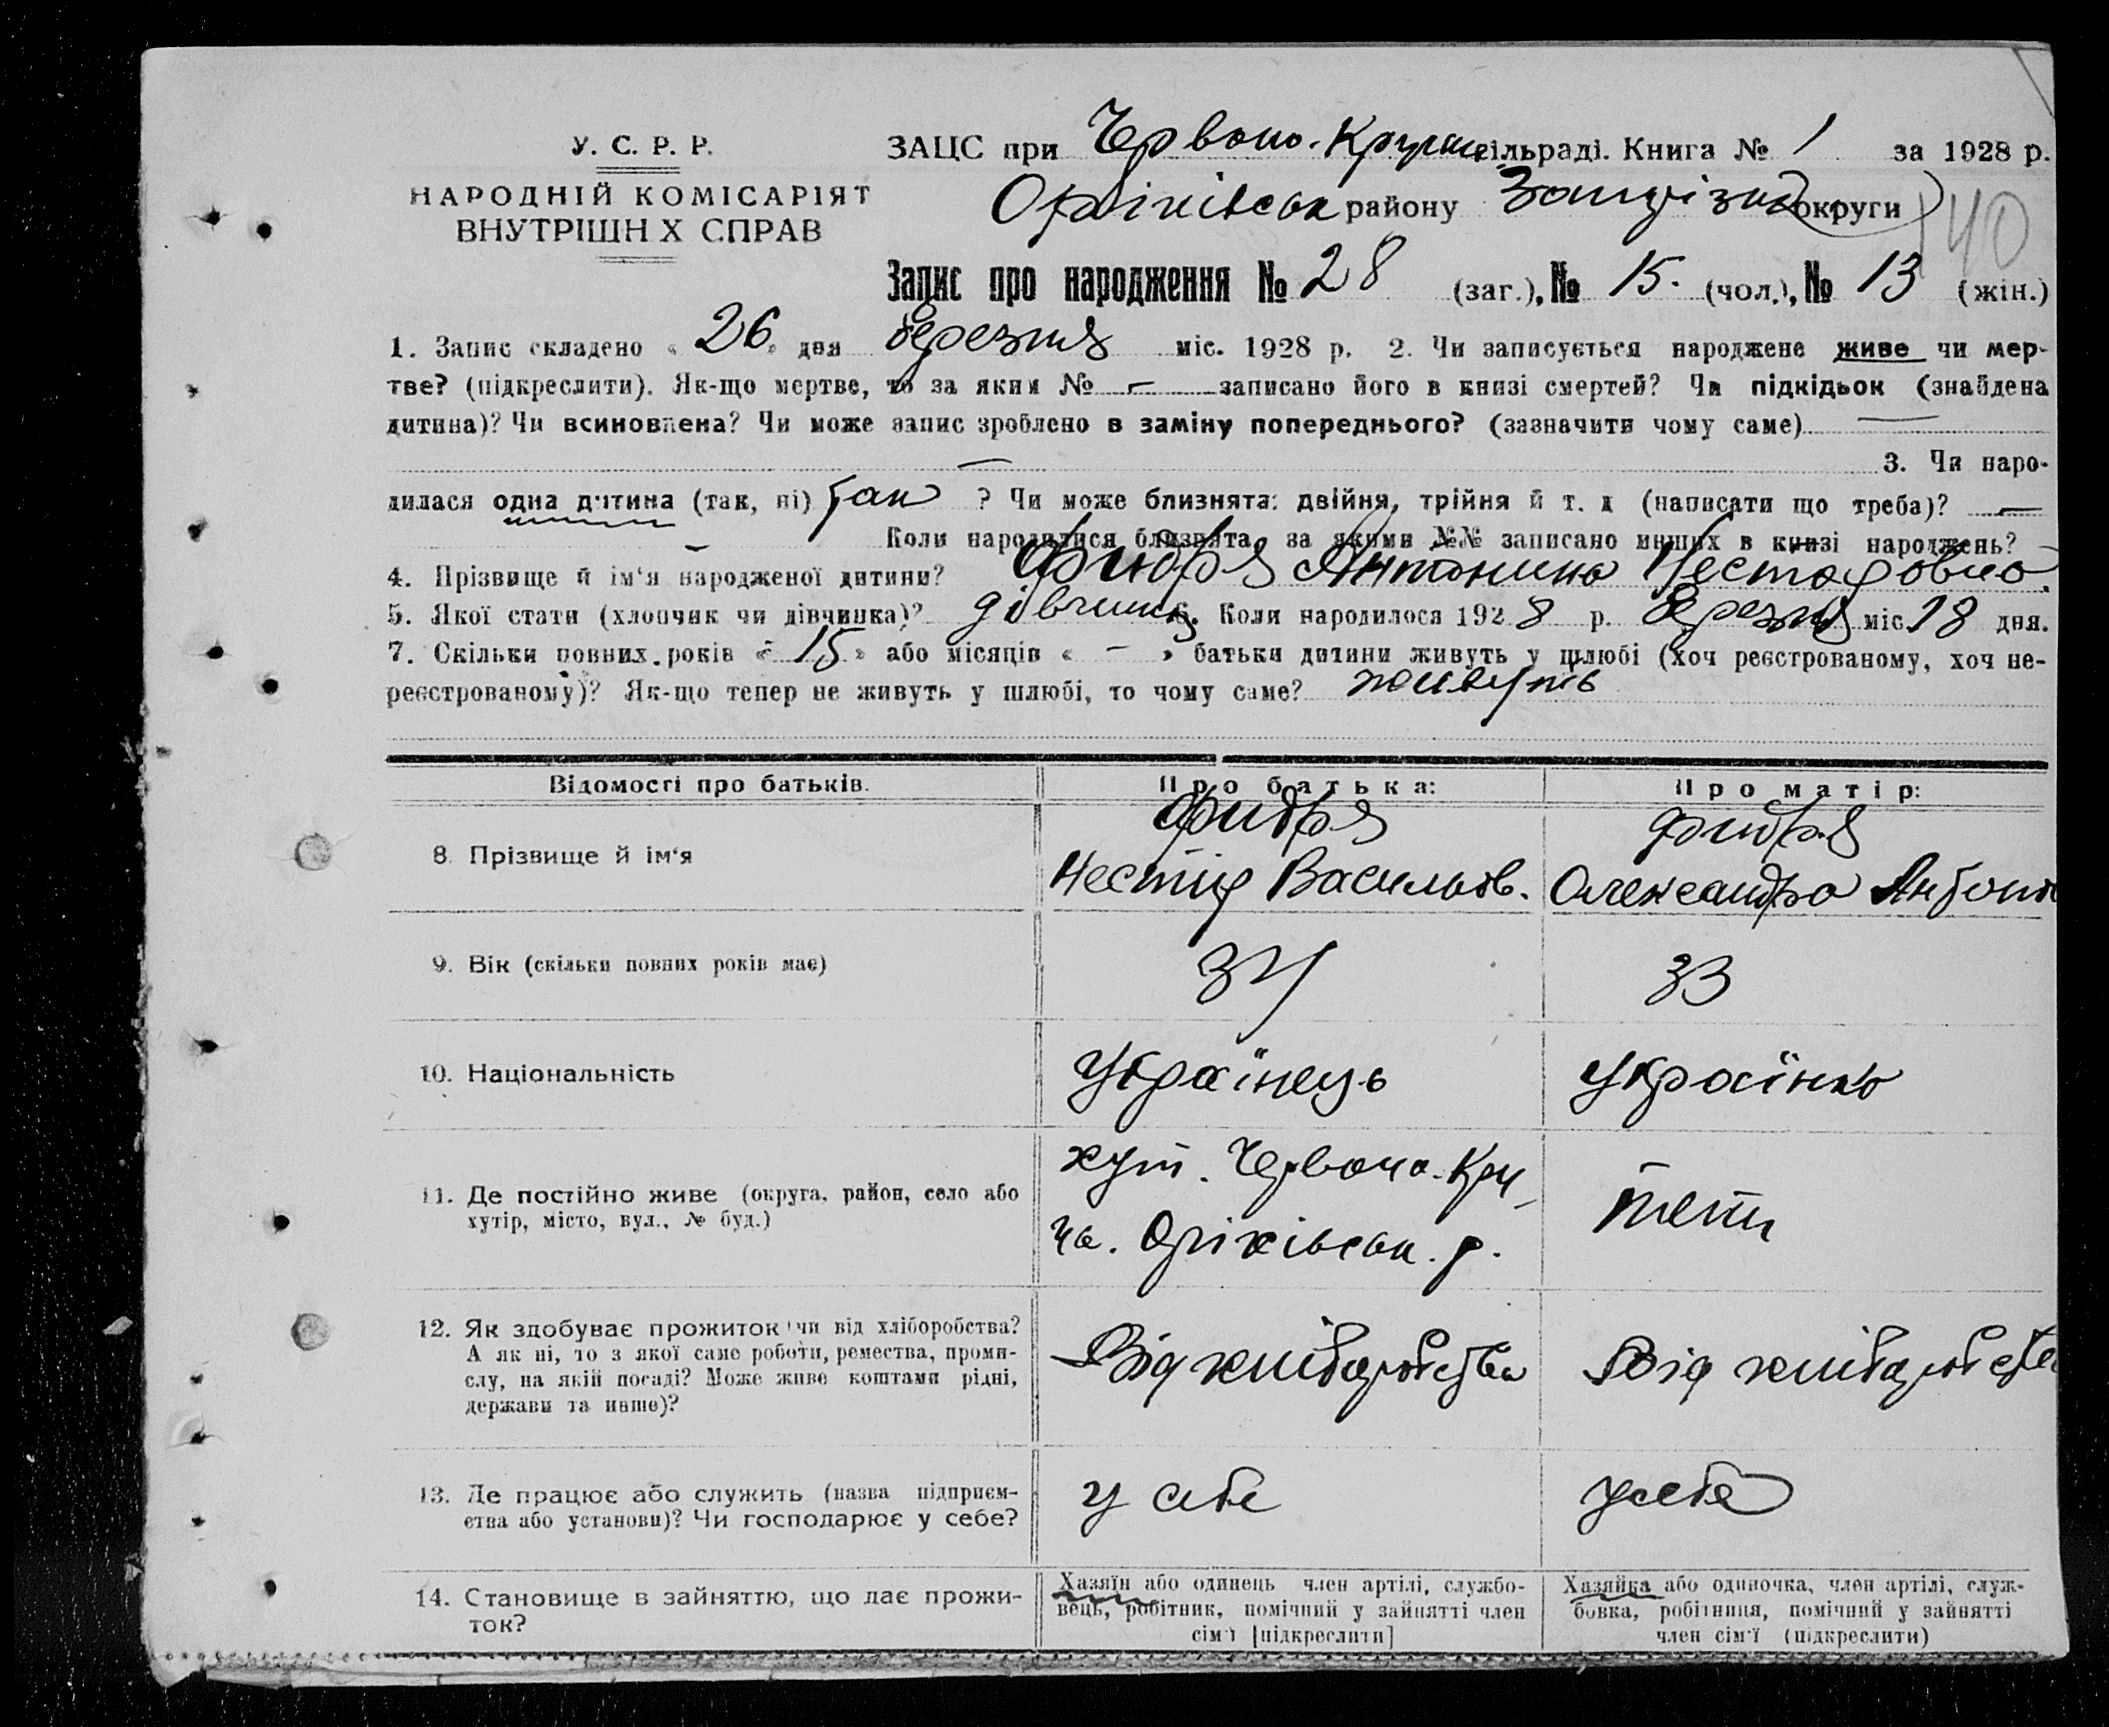 У. С. Р. Р.
НАРОДНІЙ КОМІСАРІЯТ
ВНУТРІШН Х СПРАВ
ЗАЦС при Червоно-Круч сільраді. Книга № 1 за 1928 р.
Оріхівськ району Запуріжж округи
40
Запис про народження № 28 (заг.), № 15. (чол.), № 13 (жін.)
1. Запис складено « 26 » дня березня міс. 1928 р. 2. Чи записується народжене живе чи мер-
тве? (підкреслити). Як-що мертве, то за яким № — записано його в книзі смертей? Чи підкідьок (знайдена
дитина)? Чи всиновлена? Чи може запис зроблено в заміну попереднього? (зазначити чому саме) —
— 3. Чи наро-
дилася одна дитина (так, ні) так ? Чи може близнята: двійня, трійня й т. д (написати що треба)? —
— Коли народилися близнята, за якими №№ записано инших в книзі народжень? —
4. Прізвище й ім‘я народженої дитини? Фидря Антонина Несторовна.
5. Якої стати (хлопчик чи дівчинка)? дівчинка 6. Коли народилося 1928 р. березня міс. 18 дня.
7. Скільки повних років « 15 » або місяців « — » батьки дитини живуть у шлюбі (хоч реєстрованому, хоч не-
реєстрованому)? Як-що тепер не живуть у шлюбі, то чому саме? живуть
Відомості про батьків. Про батька: Про матір:
8. Прізвище й ім‘я
Фидря
Нестір Васильов.
Фидря
Олександра Антонів
9. Вік (скільки повних років має) 34 33
10. Національність Українець Українка
11. Де постійно живе (округа, район, село або
хутір, місто, вул., № буд.)
хут. Червона-Кру-
ча. Оріхівськ. р.
теж
12. Як здобуває прожиток чи від хліборобства?
А як ні, то з якої саме роботи, ремества, проми-
слу, на якій посаді? Може живе коштами рідні,
держави та инше)?
Від хліборобства
Від хліборобства
13. Де працює або служить (назва підприєм-
ства або установи)? Чи господарює у себе?
у себе
у себе
14. Становище в зайняттю, що дає прожи-
ток?
Хазяїн або одинець член артілі, службо-
вець, робітник, помічний у зайнятті член
сім'ї [підкреслити]
Хазяйка або одиночка, член артілі, служ-
бовка, робітниця, помічний у зайнятті
член сім'ї (підкреслити)